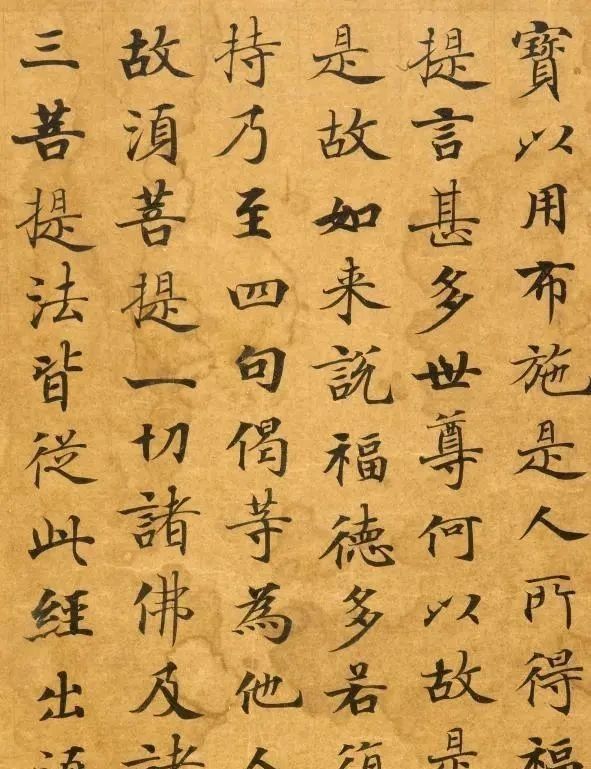 寶以用布施是人所得福
提言甚多世尊何以故是
是故如来說福德多若復
持乃至四句偈等為他人
故湏菩提一切諸佛及諸
三菩提法皆從此經出湏